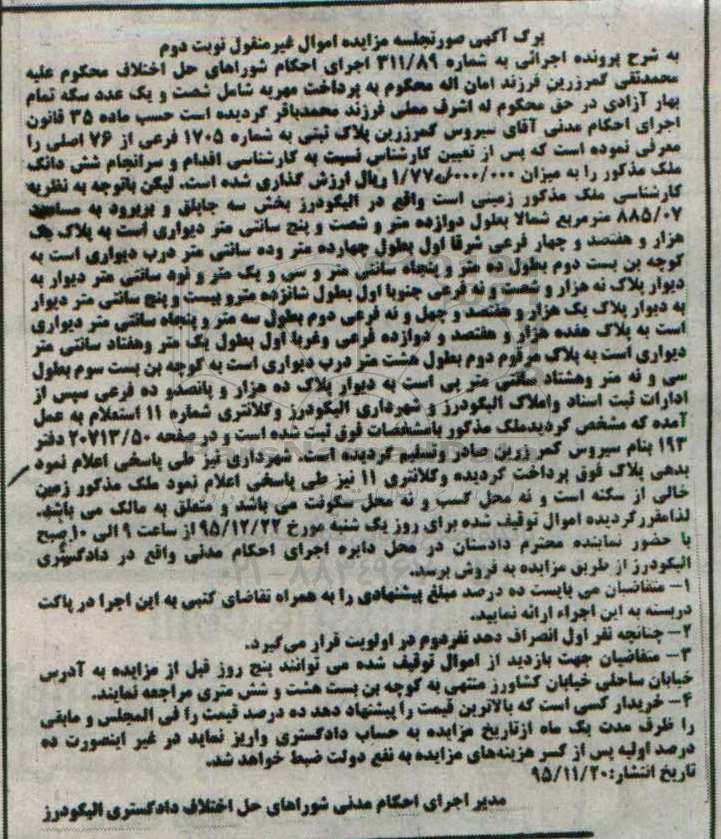 برگ آگهی صورتجلسه مزایده اموال غیرمنقول نوبت دوم
به شرح پرونده اجرائی به شماره ۳۱۱/۸۹ اجرای احکام شوراهای حل اختلاف محکوم علیه
محمدتقی گمرزرین فرزند امان اله محکوم به پرداخت مهریه شامل شصت و یک عدد سکه تمام
بهار آزادی در حق محکوم له اشرف معلی فرزند محمدباقر گردیده است حسب ماده ۳۵ قانون
اجرای احکام مدنی آقای سیروس گمرزرین پلاک ثبتی به شماره ۱۷۰۵ فرعی از ۷۶ اصلی را
معرفی نموده است که پس از تعیین کارشناس نسبت به کارشناسی اقدام و سرانجام شش دانگ
ملک مذکور را به میزان ۱/۷۷۰/۰۰۰/۰۰۰ ریال ارزش گذاری شده است. لیکن باتوجه به نظریه
کارشناسی ملک مذکور زمینی است واقع در الیگودرز بخش سه جاپلق و بربرود به مساحت
۸۸۵/۰۷ مترمربع شمالا بطول دوازده متر و شصت و پنج سانتی متر دیواری است به پلاک یک
هزار و هفتصد و چهار فرعی شرقا اول بطول چهارده متر وده سانتی متر درب دیواری است به
کوچه بن بست دوم بطول ده متر و پنجاه سانتی متر و سی و یک متر و نود سانتی متر دیوار به
دیوار پلاک نه هزار و شصت و نه فرعی جنوبا اول بطول شانزده مترو بیست و پنج سانتی متر دیوار
به دیوار پلاک یک هزار و هفتصد و چهل و نه فرعی دوم بطول سه متر و پنجاه سانتی متر دیواری
است به پلاک هفده هزار و هفتصد و دوازده فرعی وغربا اول بطول یک متر وهفتاد سانتی متر
دیواری است به پلاک مرقوم دوم بطول هشت متر درب دیواری است به کوچه بن بست سوم بطول
سی و نه متر وهشتاد سانتی متر پی است به دیوار پلاک ده هزار و پانصدو ده فرعی سپس از
ادارات ثبت اسناد واملاک الیگودرز و شهرداری الیگودرز وکلانتری شماره ۱۱ استعلام به عمل
آمده که مشخص گردیدملک مذکور بامشخصات فوق ثبت شده است و در صفحه ۲۰۷۱۳/۵۰ دفتر
۱۹۳ بنام سیروس گمر زرین صادر وتسلیم گردیده است. شهرداری نیز طی پاسخی اعلام نمود
بدهی پلاک فوق پرداخت گردیده وکلانتری ۱۱ نیز طی پاسخی اعلام نمود ملک مذکور زمین
خالی از سکنه است و نه محل کسب و نه محل سکونت می باشد و متعلق به مالک می باشد.
لذامقررگردیده اموال توقیف شده برای روز یک شنبه مورخ ۹۵/۱۲/۲۲ از ساعت ۹ الی ۱۰ صبح
با حضور نماینده محترم دادستان در محل دایره اجرای احکام مدنی واقع در دادگستری
الیگودرز از طریق مزایده به فروش برسد.
۱- متقاضیان می بایست ده درصد مبلغ پیشنهادی را به همراه تقاضای کتبی به این اجرا در پاکت
دربسته به این اجراء ارائه نمایند.
۲- چنانچه نفر اول انصراف دهد نفردوم در اولویت قرار می‌گیرد.
۳- متقاضیان جهت بازدید از اموال توقیف شده می توانند پنج روز قبل از مزایده به آدرس
خیابان ساحلی خیابان کشاورز منتهی به کوچه بن بست هشت و شش متری مراجعه نمایند.
۴- خریدار کسی است که بالاترین قیمت را پیشنهاد دهد ده درصد قیمت را فی المجلس و مابقی
را ظرف مدت یک ماه ازتاریخ مزایده به حساب دادگستری واریز نماید در غیر اینصورت ده
درصد اولیه پس از کسر هزینه‌های مزایده به نفع دولت ضبط خواهد شد.
تاریخ انتشار: ۹۵/۱۱/۲۰
مدیر اجرای احکام مدنی شوراهای حل اختلاف دادگستری الیگودرز